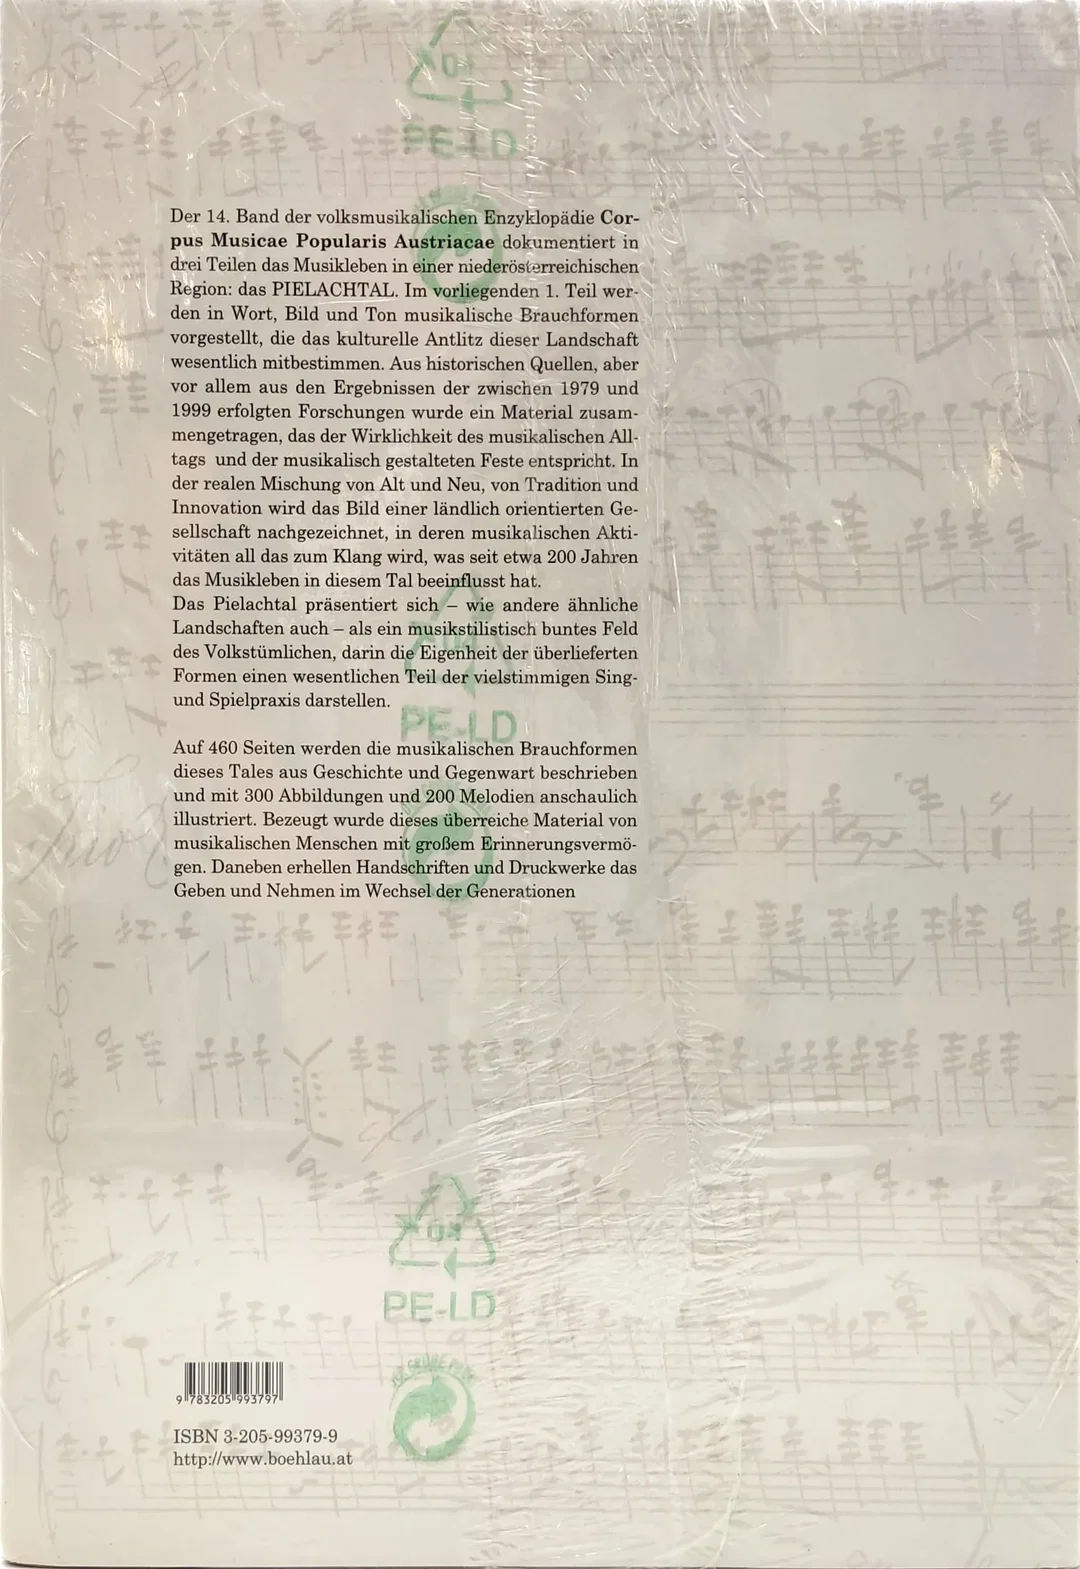 Der 14. Band der volksmusikalischen Enzyklopädie Cor-
pus Musicae Popularis Austriacae dokumentiert in
drei Teilen das Musikleben in einer niederösterreichischen
Region: das PIELACHTAL. Im vorliegenden 1. Teil wer-
den in Wort, Bild und Ton musikalische Brauchformen
vorgestellt, die das kulturelle Antlitz dieser Landschaft
wesentlich mitbestimmen. Aus historischen Quellen, aber
vor allem aus den Ergebnissen der zwischen 1979 und
1999 erfolgten Forschungen wurde ein Material zusam-
mengetragen, das der Wirklichkeit des musikalischen All-
tags und der musikalisch gestalteten Feste entspricht. In
der realen Mischung von Alt und Neu, von Tradition und
Innovation wird das Bild einer ländlich orientierten Ge-
sellschaft nachgezeichnet, in deren musikalischen Akti-
vitäten all das zum Klang wird, was seit etwa 200 Jahren
das Musikleben in diesem Tal beeinflusst hat.
Das Pielachtal präsentiert sich – wie andere ähnliche
Landschaften auch – als ein musikstilistisch buntes Feld
des Volkstümlichen, darin die Eigenheit der überlieferten
Formen einen wesentlichen Teil der vielstimmigen Sing-
und Spielpraxis darstellen.
Auf 460 Seiten werden die musikalischen Brauchformen
dieses Tales aus Geschichte und Gegenwart beschrieben
und mit 300 Abbildungen und 200 Melodien anschaulich
illustriert. Bezeugt wurde dieses überreiche Material von
musikalischen Menschen mit großem Erinnerungsvermö-
gen. Daneben erhellen Handschriften und Druckwerke das
Geben und Nehmen im Wechsel der Generationen
9 783205 993797
ISBN 3-205-99379-9
http://www.boehlau.at
04
PE-LD
PE-LD
04
PE-LD